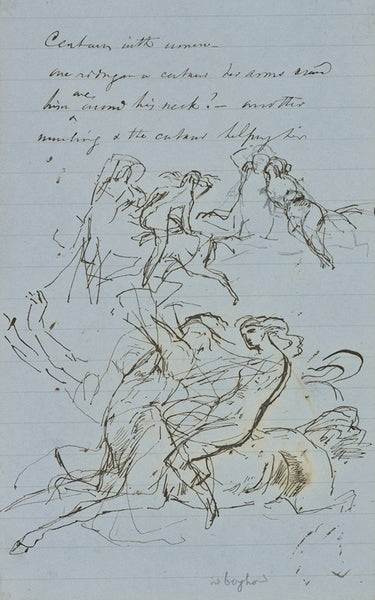 Centaurs with women –
one riding on a centaur her arms round
him arm round his neck? – another
mounting & the centaur helping her